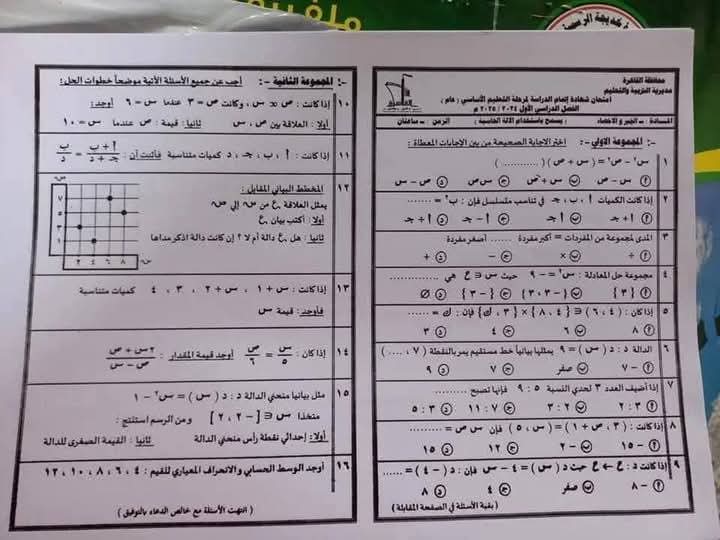 محافظة القاهرة
مديرية التربية والتعليم
امتحان شهادة إتمام الدراسة لمرحلة التعليم الأساسي ( عام )
الفصل الدراسي الأول ٢٠٢٤ / ٢٠٢٥ م
المـــادة : ــ الجبر والاحصاء ( يسمح باستخدام الآلة الحاسبة ) الزمن : ــ ساعتان
المجموعة الأولي :- اختر الاجابة الصحيحة من بين الإجابات المعطاة :
١ س٢ − ص٢ = ( س + ص ) ( ............ )
أ س − ص ب س + ص ج س ص د ص − س
٢ إذا كانت الكميات أ ، ب ، جـ في تناسب متسلسل فإن : ب٢ = .......
أ أ + جـ ب أ جـ ج أ − جـ د أ ÷ جـ
٣ المدى لمجموعة من المفردات = أكبر مفردة ...... أصغر مفردة
أ ÷ ب × ج − د +
٤ مجموعة حل المعادلة : س٢ = − ٩ حيث س ∈ ع هي ............
أ { ٣ } ب { − ٣ ، ٣ } ج { − ٣ } د ∅
٥ إذا كان : ( ٤ ، ٦ ) ∈ { ٤ ، ٨ } × { ٣ ، ك } فإن : ك = ......
أ ٨ ب ٦ ج ٤ د ٣
٦ الدالة د : د ( س ) = ٩ يمثلها بيانياً خط مستقيم يمر بالنقطة ( ٧ ، .... )
أ − ٧ ب صفر ج ٧ د ٩
٧ إذا أضيف العدد ٣ لحدي النسبة ٥ : ٩ فإنها تصبح .......
أ ٣ : ٢ ب ٢ : ٣ ج ٧ : ١١ د ٣ : ٥
٨ إذا كانت : ( ٣ ، ص + ١ ) = ( س ، ٥ ) فإن س ص = ........
أ − ١٥ ب − ٢ ج ١٢ د ١٥
٩ إذا كانت د : ع ← ع حيث د ( س ) = ٤ − س فإن : د ( − ٤ ) = ......
أ − ٨ ب صفر ج ٤ د ٨
( بقية الأسئلة في الصفحة المقابلة )
المجموعة الثانية :- أجب عن جميع الأسئلة الآتية موضحاً خطوات الحل :
١٠ إذا كانت : ص ∝ س ، وكانت ص = ٣ عندما س = ٦ أوجد :
أولا : العلاقة بين ص ، س ثانيا : قيمة : ص عندما س = ١٠
١١ إذا كانت : أ ، ب ، جـ ، د كميات متناسبة فأثبت أن : أ + ب / جـ + د = ب / د
١٢ المخطط البياني المقابل :
يمثل العلاقة ع من س إلي ص
أولا : أكتب بيان ع
ثانيا : هل ع دالة أم لا ؟ إن كانت دالة اذكر مداها
ص
٧
٥
٣
١
٢ ٤ ٦ ٨ س
١٣ إذا كانت : س + ١ ، س + ٢ ، ٣ ، ٤ كميات متناسبة
فأوجد : قيمة س
١٤ إذا كان : س / ٥ = ص / ٦ أوجد قيمة المقدار : ٢ س + ص / ص − س
١٥ مثل بيانيا منحنى الدالة د : د ( س ) = س٢ − ١
متخذا س ∈ [ − ٢ ، ٢ ] ومن الرسم استنتج :
أولا : إحداثي نقطة رأس منحنى الدالة ثانيا : القيمة الصغرى للدالة
١٦ أوجد الوسط الحسابي والانحراف المعياري للقيم : ٤ ، ٦ ، ٨ ، ١٠ ، ١٢
( انتهت الأسئلة مع خالص الدعاء بالتوفيق )